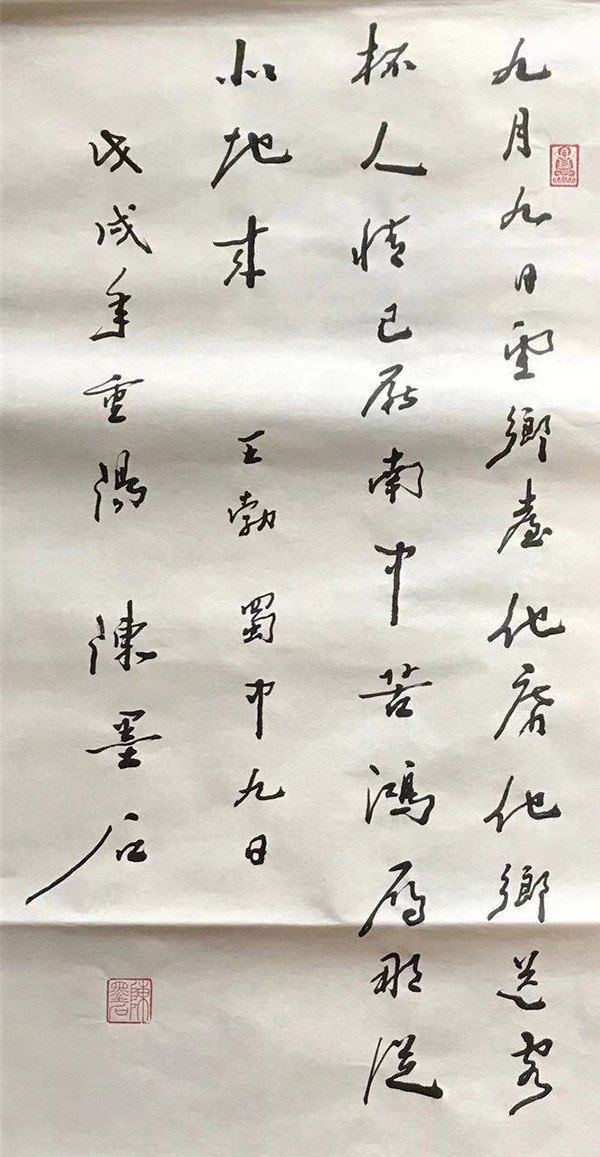 九月九日望鄉臺他席他鄉送客
杯人情已厭南中苦鴻雁那從
北地來
王勃 蜀中九日
戊戌年重陽 陳墨石
陳墨石